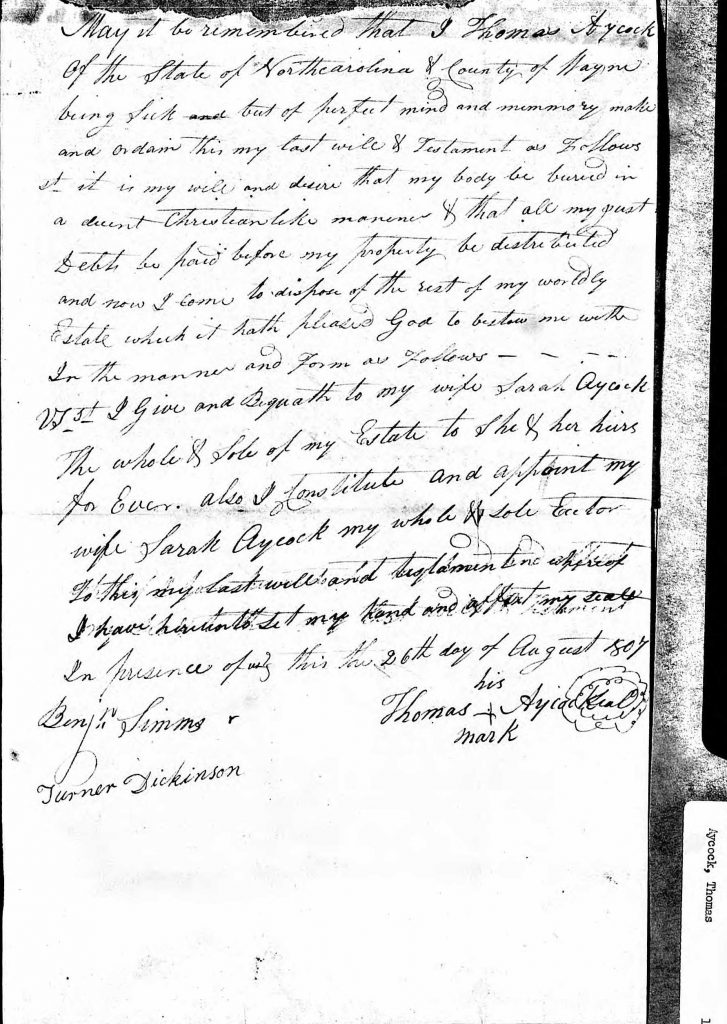 May it be remembered that I Thomas Aycock
Of the State of Northcarolina & County of Wayne
being Sick and but of perfect mind and memmory make
and ordain this my last will & Testament as Follows
st it is my will and desire that my body be buried in
a decent Christianlike manener & that all my just
Debts be paid before my property be distributed
and now I come to dispose of the rest of my worldly
Estate which it hath pleased God to bestow me with
In the manner and Form as Follows - - - -
I Give and Bequath to my wife Sarah Aycock
The whole & Sole of my Estate to She & her heirs
for Ever. also I Constitute and appoint my
wife Sarah Aycock my whole & Sole Exctor
To this my last will and testament whereof
I have hereunto Set my hand and affixt my seal
In presence of us this the 26th day of August 1807
his
Thomas + Aycock Seal
mark
Benjn Simms
Turner Dickinson
Aycock, Thomas
1